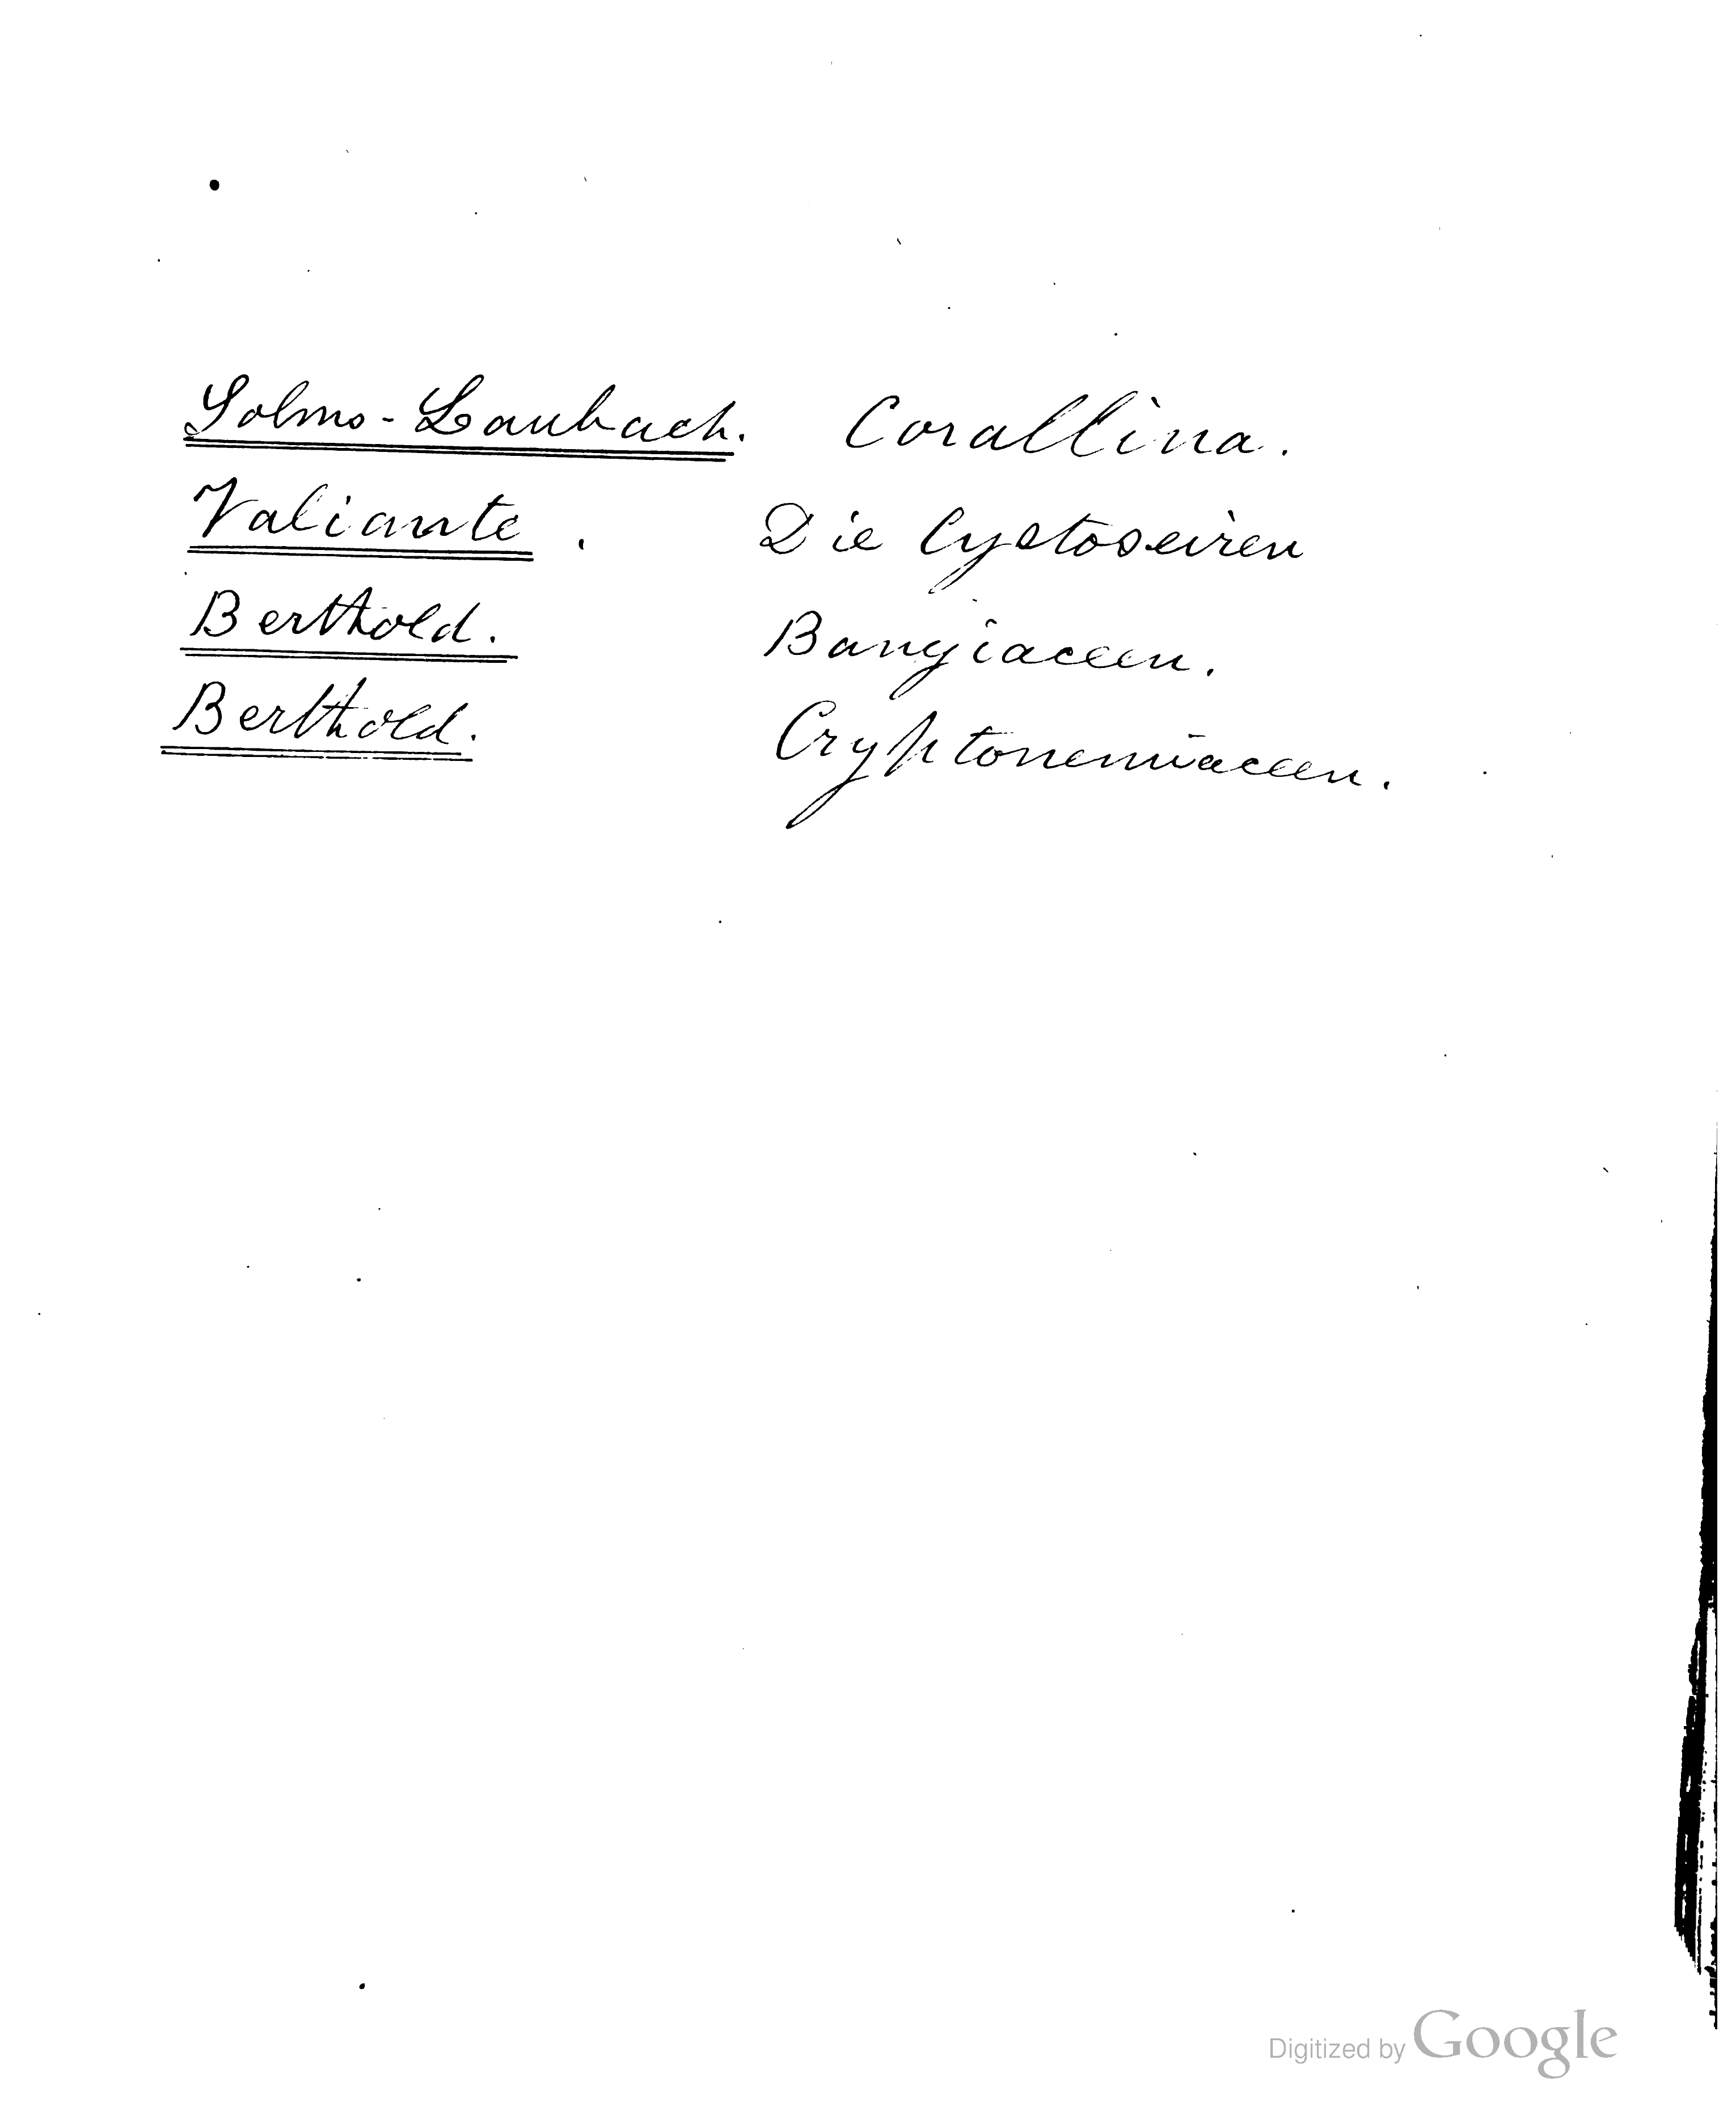 Solms-Laubach. Corallina.
Valiante. Die Cystoseiren
Berthold. Bangiaceen.
Berthold. Cryptonemiaceen.
Digitized by Google